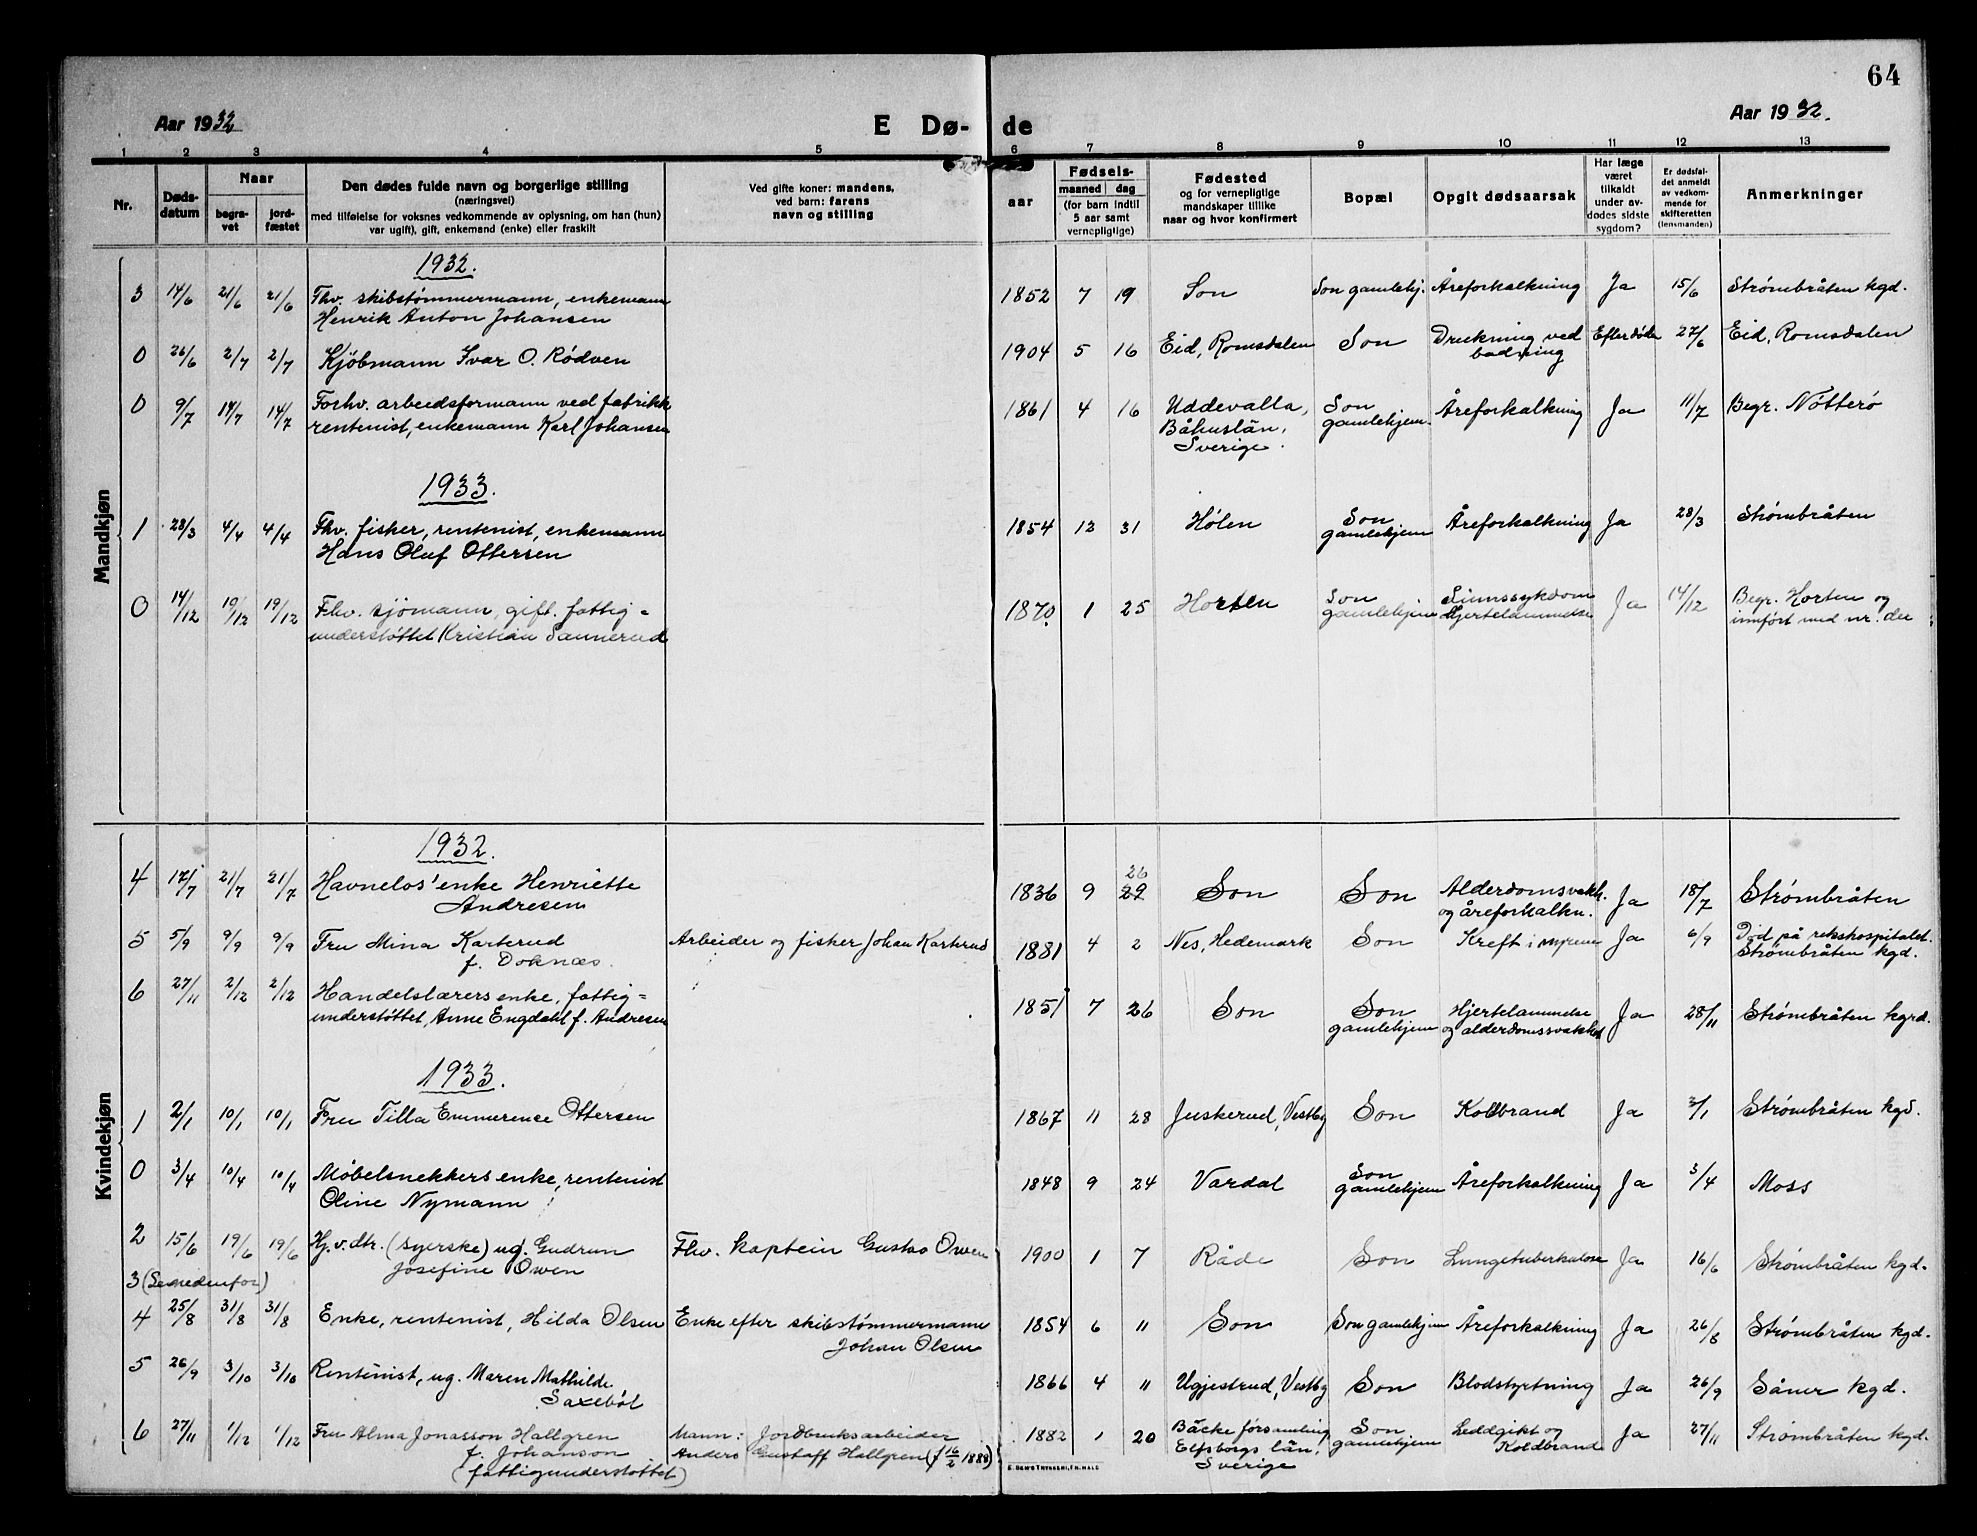 64
Aar 1932
E Dø- de
Aar 1932.
1 2 3 4 5 6 7 8 9 10 11 12 13
Nr.
Døds-
datum
Naar
begra-
vet
jord-
fæstet
Den dødes fulde navn og borgerlige stilling
(næringsvei)
med tilføielse for voksnes vedkommende av oplysning, om han (hun)
var ugift), gift, enkemand (enke) eller fraskilt
Ved gifte koner: mandens,
ved barn: farens
navn og stilling
aar
Fødsels-
maaned dag
(for barn indtil
5 aar samt
vernepligtige)
Fødested
og for vernepligtige
mandskaper tillike
naar og hvor konfirmert
Bopæl
Opgit dødsaarsak
Har læge
været
tilkaldt
under av-
dødes sidste
sygdom?
Er dødsfal-
det anmeldt
av vedkom-
mende for
skifteretten
(lensmanden)
Anmerkninger
Mandkjøn
1932.
3 14/6 21/6 21/6 Fhv. skibstømmermann, enkemann 1852 7 19 Son Son gamlehj. Åreforkalkning Ja 15/6 Strømbråten kgd.
Henrik Anton Johansen
0 26/6 2/7 2/7 Kjöbmann Ivar O. Rødven 1904 5 16 Eid, Romsdalen Son Drukning ved Efter døden 27/6 Eid, Romsdalen
badning
0 9/7 14/7 14/7 Forhv. arbeidsformann ved fabrikk 1861 4 16 Uddevalla, Son Åreforkalkning Ja 11/7 Begr. Nötterö
rentenist, enkemann Karl Johansen Båhuslän, gamlehjem.
Sverige.
1933.
1 28/3 4/4 4/4 Fhv. fisker, rentenist, enkemann 1854 12 31 Hølen Son Åreforkalkning Ja 28/3 Strømbråten
Hans Oluf Ottersen gamlehjem
0 14/12 19/12 19/12 Fhv. sjömann, gift. fattig= 1870 1 25 Horten Son Sinnssykdom Ja 14/12 Begr. Horten og
understøttet Kristian Sannerud gamlehjem Hjertelammelse innfört med nr. der
Kvindekjøn
1932.
4 17/7 21/7 21/7 Havnelos' enke Henriette 1836 9 29 26 Son Son Alderdomsvakh. Ja 18/7 Strømbråten
Andresen og åreforkalkn.
5 5/9 9/9 9/9 Fru Mina Karterud Arbeider og fisker Johan Karterud 1881 4 2 Nes, Hedemark Son Kreft i nyrene Ja 6/9 Död på rikshospitalet.
f. Doknæs. Strømbråten kgd.
6 27/11 2/12 2/12 Handelslærers enke, fattig= 1851 7 26 Son Son Hjertelammelse Ja 28/11 Strømbråten kgrd.
understøttet, Anne Engdahl f. Andresen gamlehjem og alderdomssvakhet
1933.
1 2/1 10/1 10/1 Fru Tilla Emmerense Ottersen 1867 11 28 Juskerud, Vestby Son Koldbrand Ja 3/1 Strømbråten kgd.
0 3/4 10/4 10/4 Møbelsnekkers enke, rentenist 1848 9 24 Vardal Son Åreforkalkning Ja 3/4 Moss
Oline Nymann gamlehjem
2 15/6 19/6 19/6 Hj.v. dtr. (syerske) ug. Gudrun Fhv. kaptein Gustav Owen 1900 1 7 Råde Son Lungetuberkulose Ja 16/6 Strømbråten kgd.
Josefine Owen
3 (Se nedenfor)
4 25/8 31/8 31/8 Enke, rentenist, Hilda Olsen Enke efter skibstømmermann 1854 6 11 Son Son gamlehjem Åreforkalkning Ja 26/8 Strømbråten kgd.
Johan Olsen
5 26/9 3/10 3/10 Rentenist, ug. Maren Mathilde 1866 4 11 Ugjestrud, Vestby Son Blodstyrtning Ja 26/9 Såner kgd.
Saxebøl
6 27/11 1/12 1/12 Fru Alma Jonasson Hallgren Mann: Jordbruksarbeider 1882 1 20 Bäcke församling Son Leddgikt og Ja 27/11 Strømbråten kgd.
f. Johanson Anders Gustaff Hallgren (f 16/2 1888) Elfsborgs län, gamlehjem Koldbrand
(fattigunderstøttet) Sverige